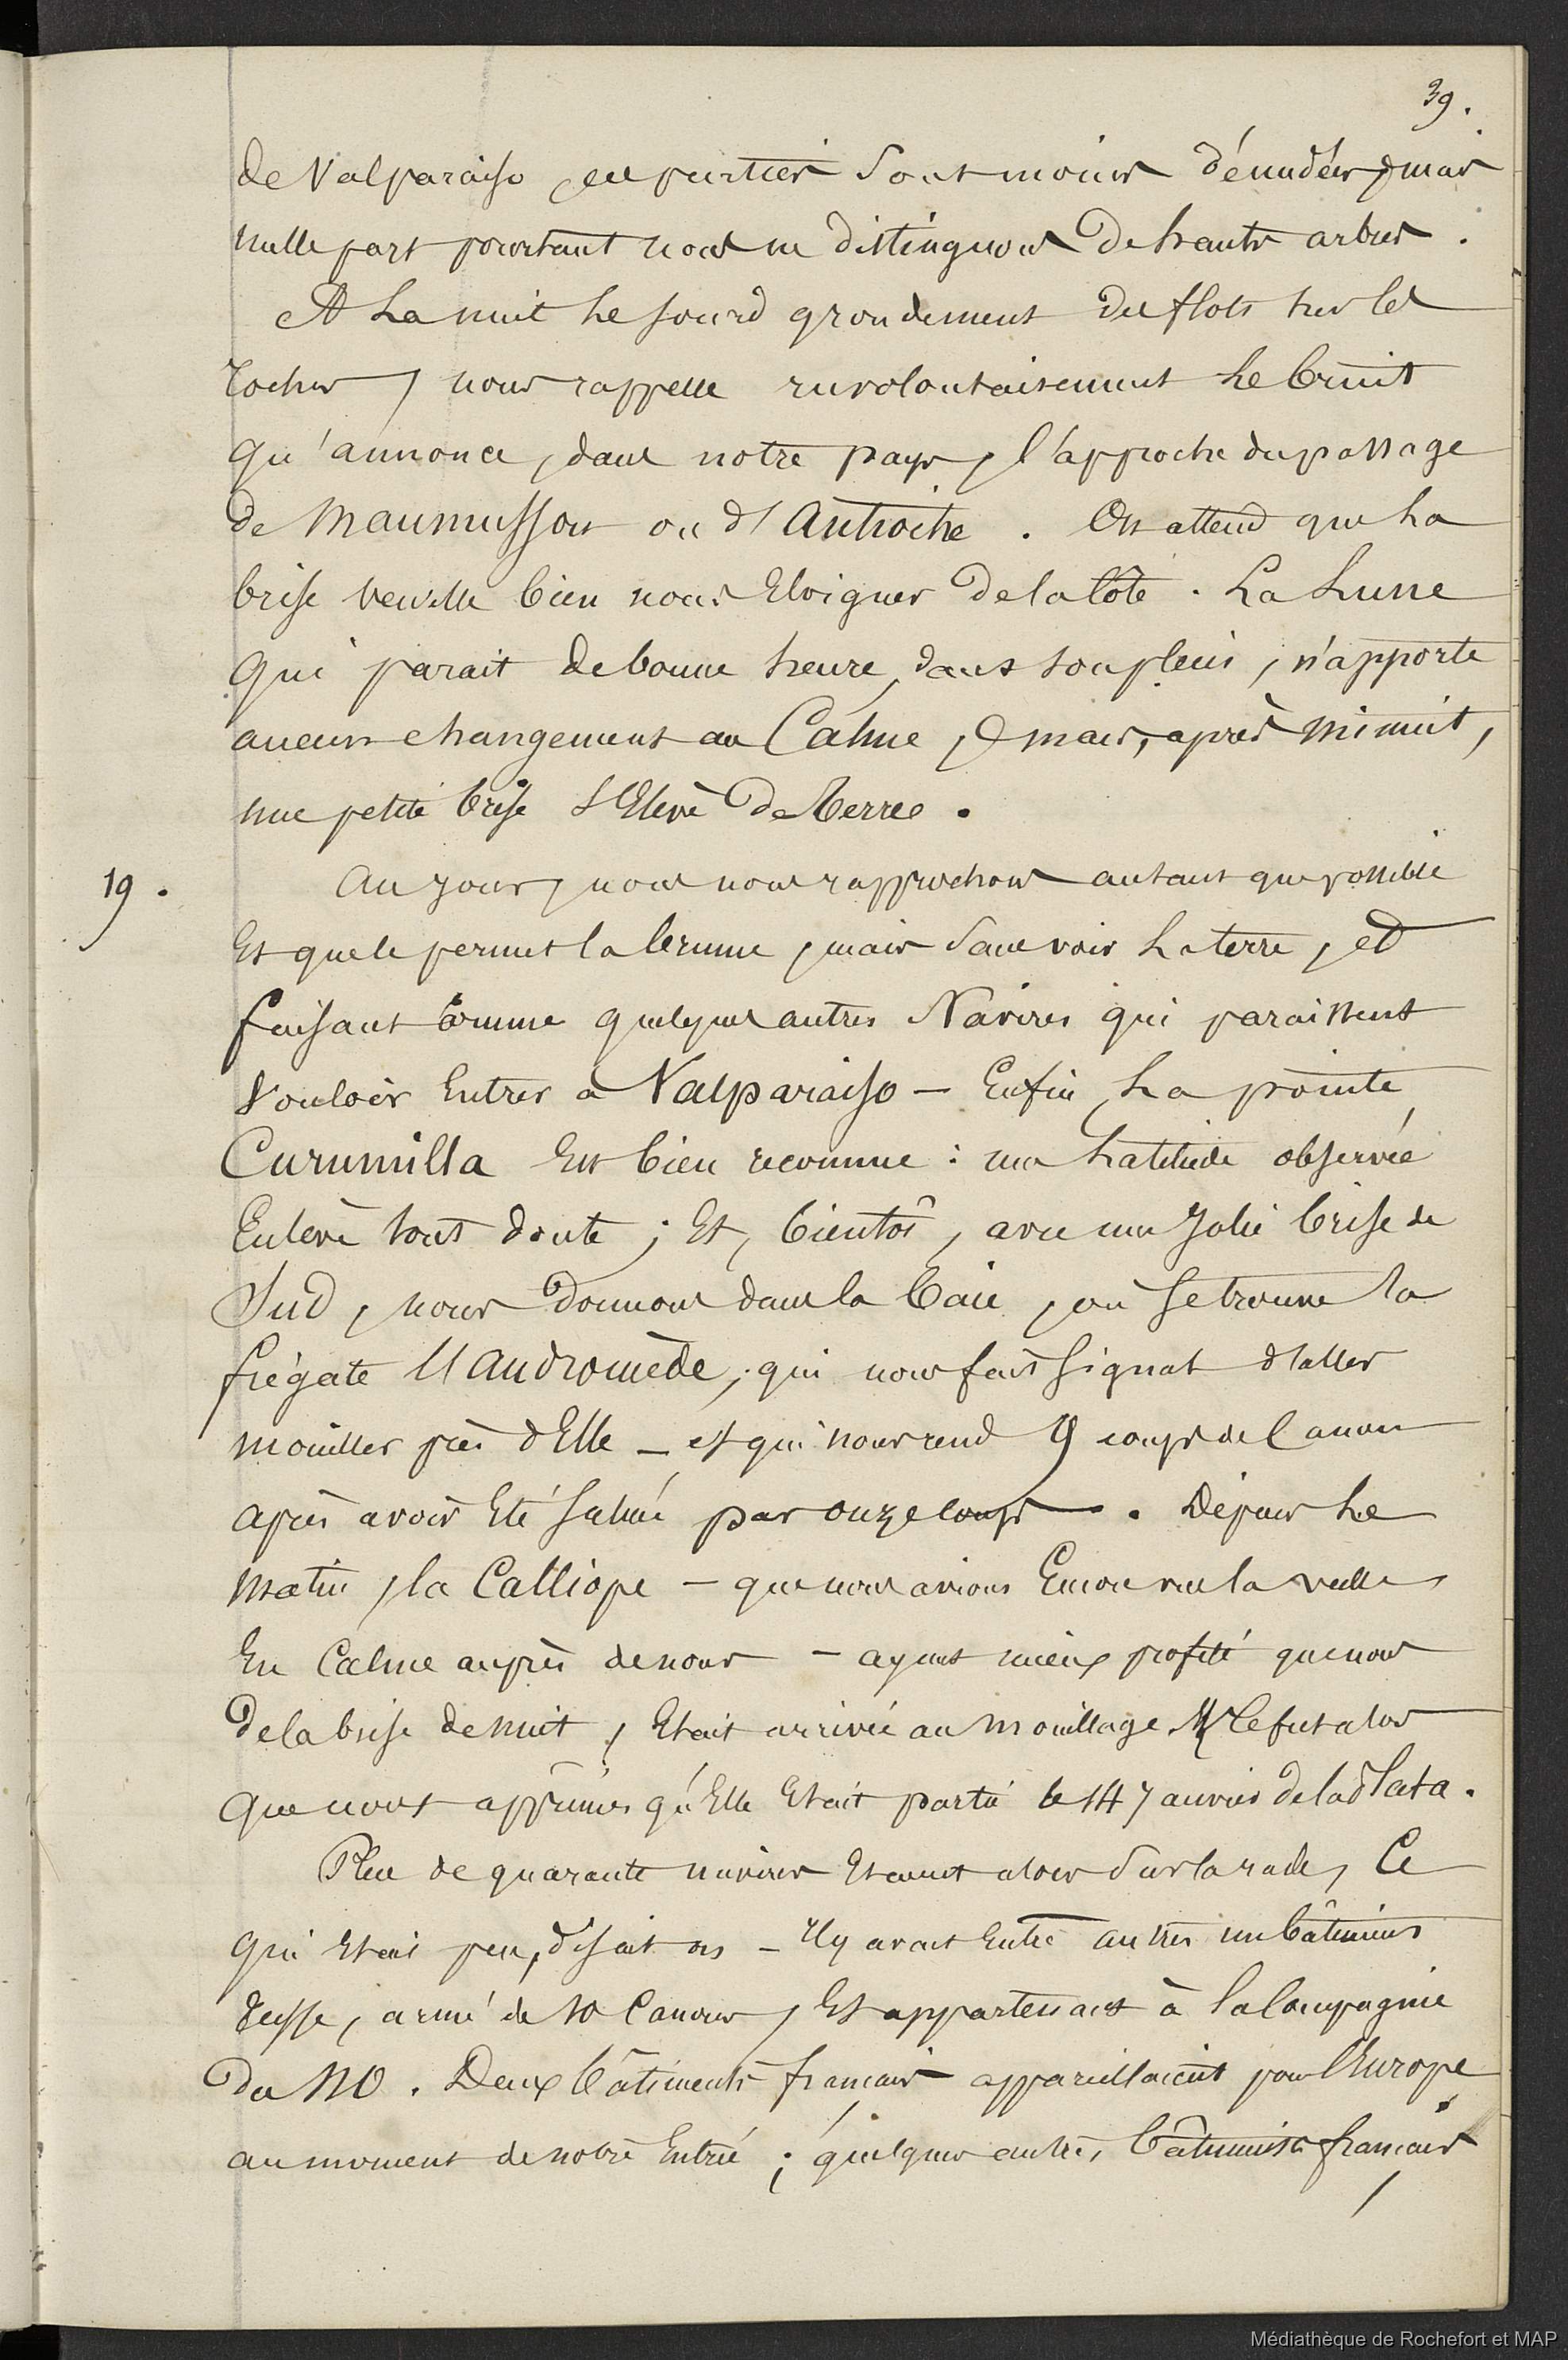 39.
de Valparaiso, en partie sont moins dénudées, mais
nulle part pourtant nous ne distinguons de hauts arbres.
A La nuit Le sourd grondement des flots sur les
rochers, nous rappelle involontairement Le bruit
qu'annonce, dans notre pays, l'approche du passage
de Maumusson ou d'Antioche. On attend que La
brise veuille bien nous Eloigner de la Côte. La Lune
qui parait de bonne heure, dans son plein, n'apporte
aucun changement au Calme, mais, après minuit,
une petite brise s'Elève de terre.
19. Au jour, nous nous rapprochons autant que possible
Et que le permet la brume, mais sans voir La terre, et
faisant comme quelques autres Navires qui paraissent
Vouloir Entrer à Valparaiso — Enfin, La pointe
Curumilla Est bien reconnue : une Latitude observée
Enlève tout doute ; Et, bientôt, avec une Jolie brise de
Sud, nous donnons dans la baie, où se trouve la
frégate l'Andromède, qui nous fait signal d'aller
mouiller près d'Elle — et qui nous rend 9 coups de Canon
après avoir Eté saluée par onze coups. Depuis Le
matin, la Calliope — que nous avions Encore vue la veille
En Calme auprès de nous — ayant mieux profité que nous
de la brise de nuit, Etait arrivée au mouillage. Ce fut alors
que nous apprîmes qu'Elle Etait partie le 14 Janvier de la Plata.
Plus de quarante navires Etaient alors sur la rade, Ce
qui Etait peu, disait on — Il y avait Entre autres un bâtiment
russe, armé de 10 Canons, Et appartenant à la Compagnie
du NO. Deux bâtiments français appareillaient pour l'Europe
au moment de notre Entrée ; quelques autres bâtiments français
Médiathèque de Rochefort et MAP